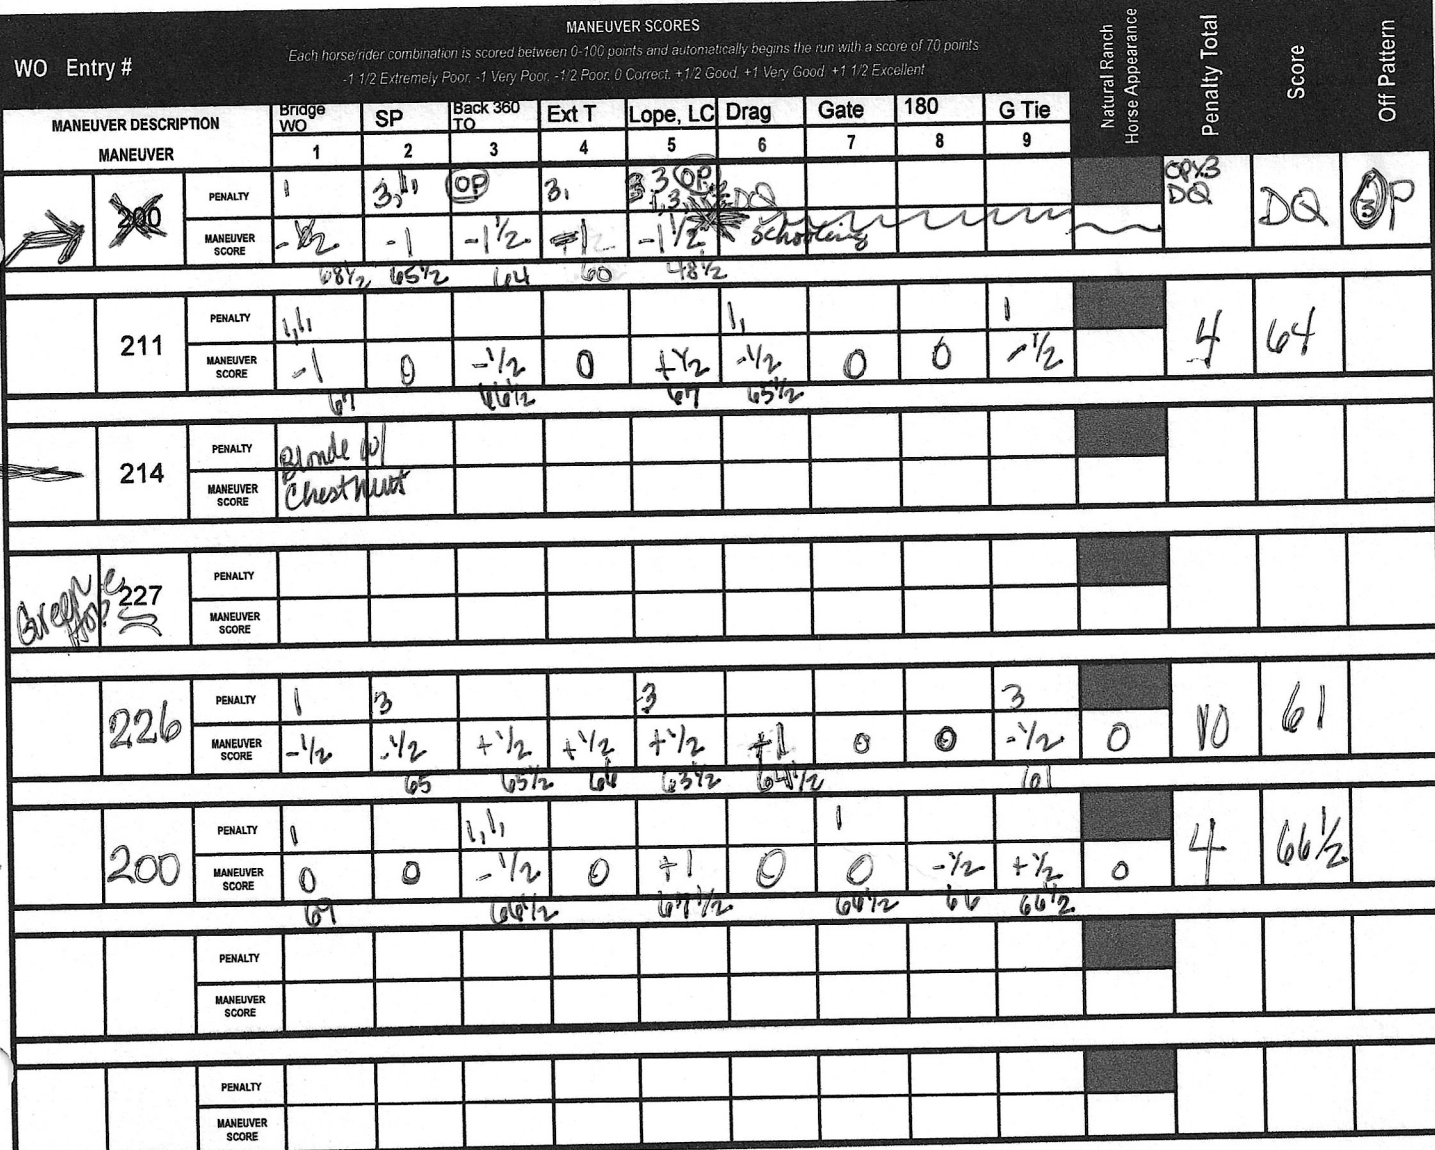 MANEUVER SCORES
Each horse/rider combination is scored between 0-100 points and automatically begins the run with a score of 70 points
-1 1/2 Extremely Poor, -1 Very Poor, -1/2 Poor, 0 Correct, +1/2 Good, +1 Very Good, +1 1/2 Excellent
WO Entry #
Natural Ranch Horse Appearance
Penalty Total
Score
Off Pattern
MANEUVER DESCRIPTION Bridge WO SP Back 360 TO Ext T Lope, LC Drag Gate 180 G Tie
MANEUVER 1 2 3 4 5 6 7 8 9
200
PENALTY 1 3,1, OP 3, 3 OP DQ OPX3 DQ DQ OP
MANEUVER SCORE -1 -1 1/2 -1 1/2 Schooling
68 1/2 65 1/2 64 60 48 1/2
211
PENALTY 1,1, 1, 1 4 64
MANEUVER SCORE -1 0 -1/2 0 +1/2 -1/2 0 0 -1/2
67 66 1/2 67 65 1/2
214
PENALTY Blonde w/
MANEUVER SCORE Chestnut
227
PENALTY
MANEUVER SCORE
226
PENALTY 1 3 3 3 10 61
MANEUVER SCORE -1/2 -1/2 +1/2 +1/2 +1/2 +1 0 0 -1/2 0
65 65 1/2 66 63 1/2 64 1/2 61
200
PENALTY 1 1,1, 1 4 66 1/2
MANEUVER SCORE 0 0 -1/2 0 +1 0 0 -1/2 +1/2 0
69 66 1/2 67 1/2 66 1/2 66 66 1/2
PENALTY
MANEUVER SCORE
PENALTY
MANEUVER SCORE